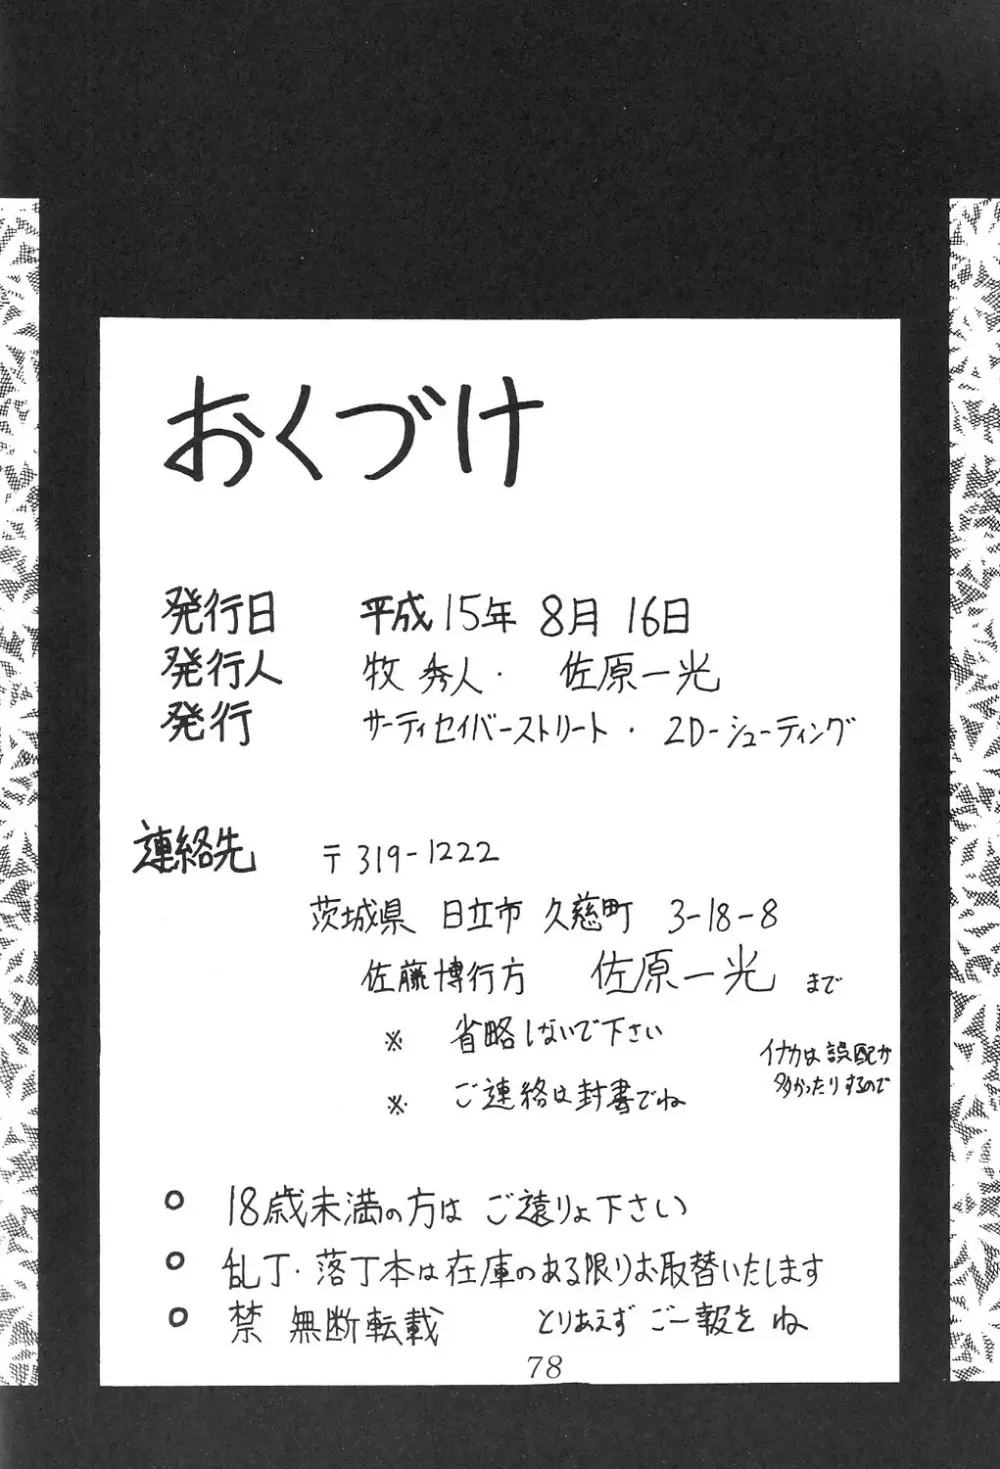 おくづけ
発行日 平成15年 8月 16日
発行人 牧 秀人・ 佐原一光
発行 サーティセイバーストリート・2D-シューティング
連絡先 〒319-1222
茨城県 日立市 久慈町 3-18-8
佐藤博行方 佐原一光 まで
※ 省略しないで下さい
イナカは誤配が
多かったりするので
※ ご連絡は封書でね
○ 18歳未満の方は ご遠りょ下さい
○ 乱丁・落丁本は在庫のある限りお取替いたします
○ 禁 無断転載 とりあえず ご一報を ね
78